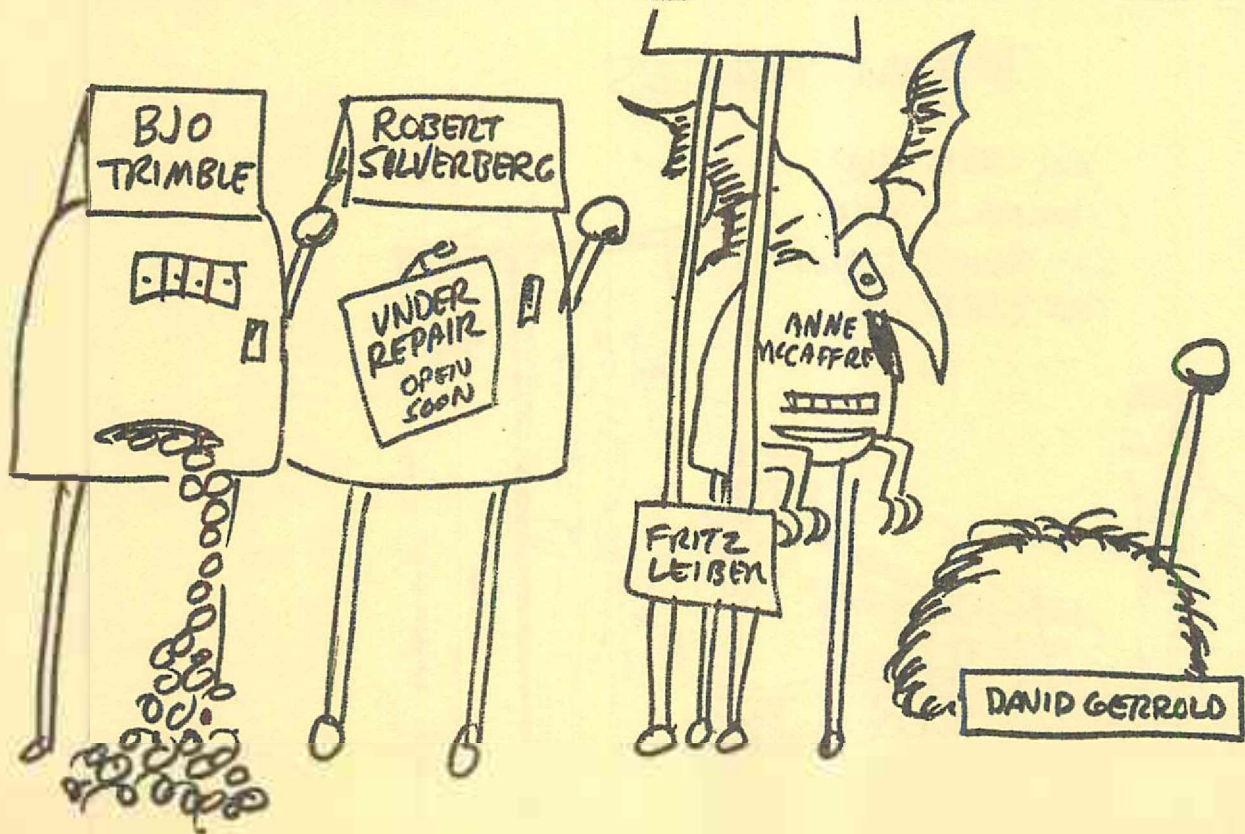 BJO
TRIMBLE
ROBERT
SILVERBERG
UNDER
REPAIR
OPEN
SOON
ANNE
MCCAFFRE
FRITZ
LEIBER
DAVID GERROLD